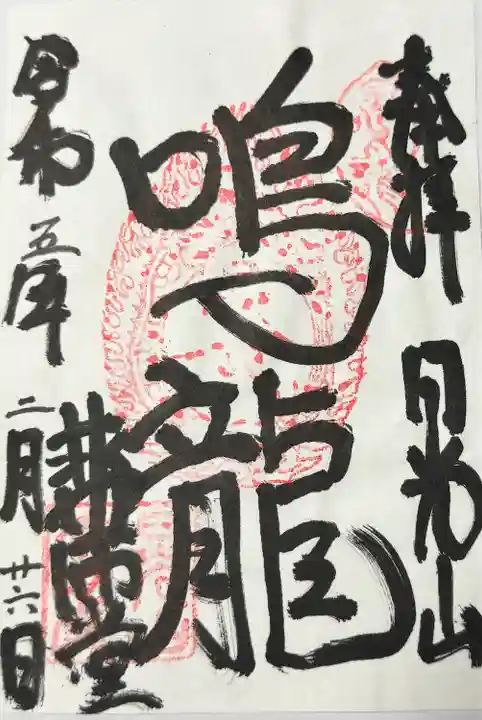 奉拝 日光山
鳴龍
藥師堂
令和五年二月廿六日